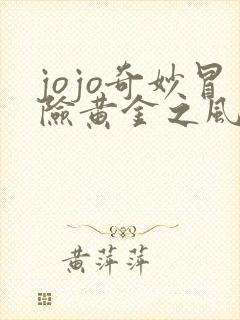 jojo奇妙冒
險黄金之風
黄萍萍